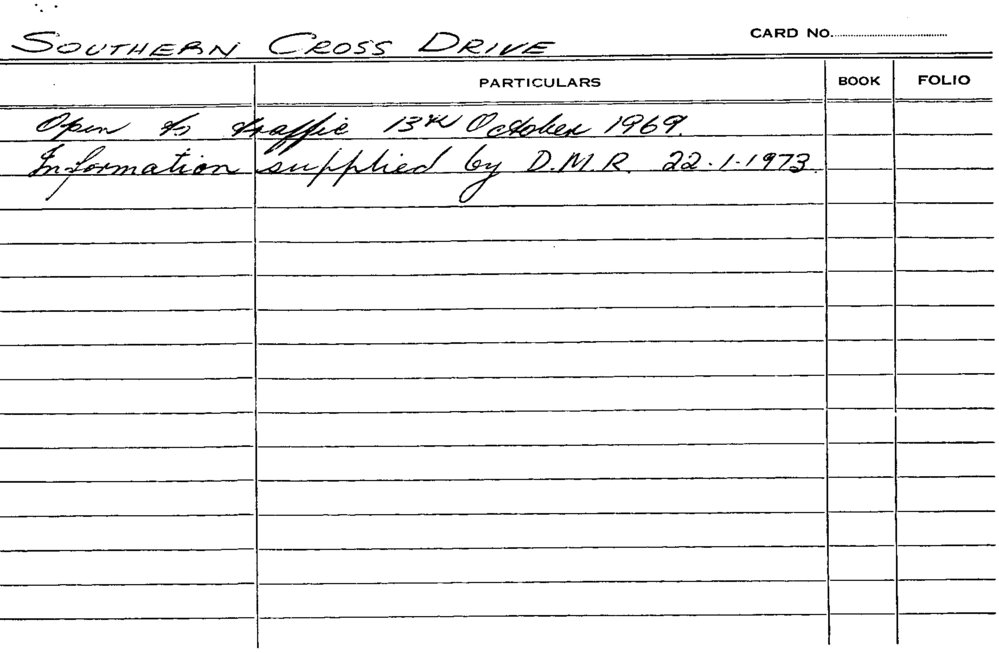 SOUTHERN CROSS DRIVE
CARD No.
PARTICULARS BOOK FOLIO
Open to traffic 13th October 1969.
Information supplied by D.M.R. 22.1.1973.